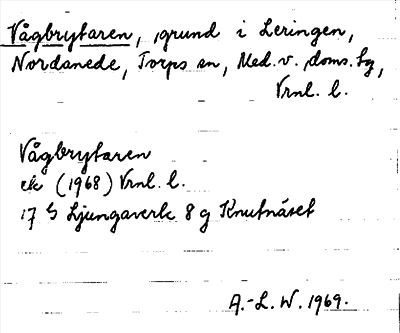 Vågbrytaren, grund i Leringen,
Nordanede, Torps sn, Med. v. doms. lg,
Vrnl. l.
Vågbrytaren
ek (1968) Vrnl. l.
17 G Ljungaverk 8 g Knutnäset
A.-L. W. 1969.